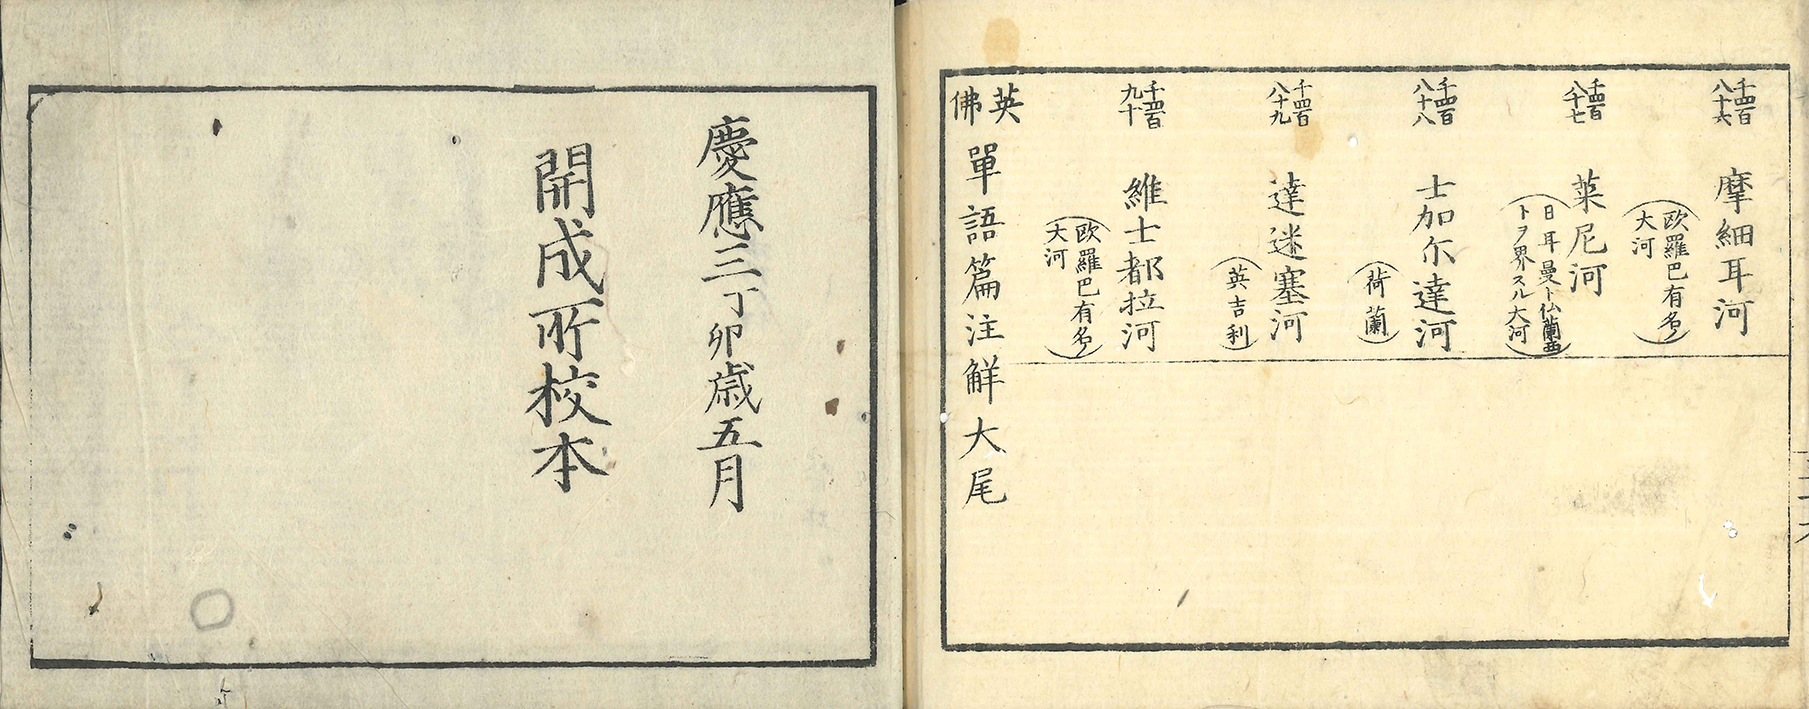 千四百八十六
摩細耳河
(欧羅巴有名ノ大河)
千四百八十七
萊尼河
(日耳曼ト仏蘭西トヲ界スル大河)
千四百八十八
士加尓達河
(荷蘭)
千四百八十九
達迷塞河
(英吉利)
千四百九十
維士都拉河
(欧羅巴有名ノ大河)
英佛單語篇注觧大尾
慶應三丁卯歳五月
開成所校本